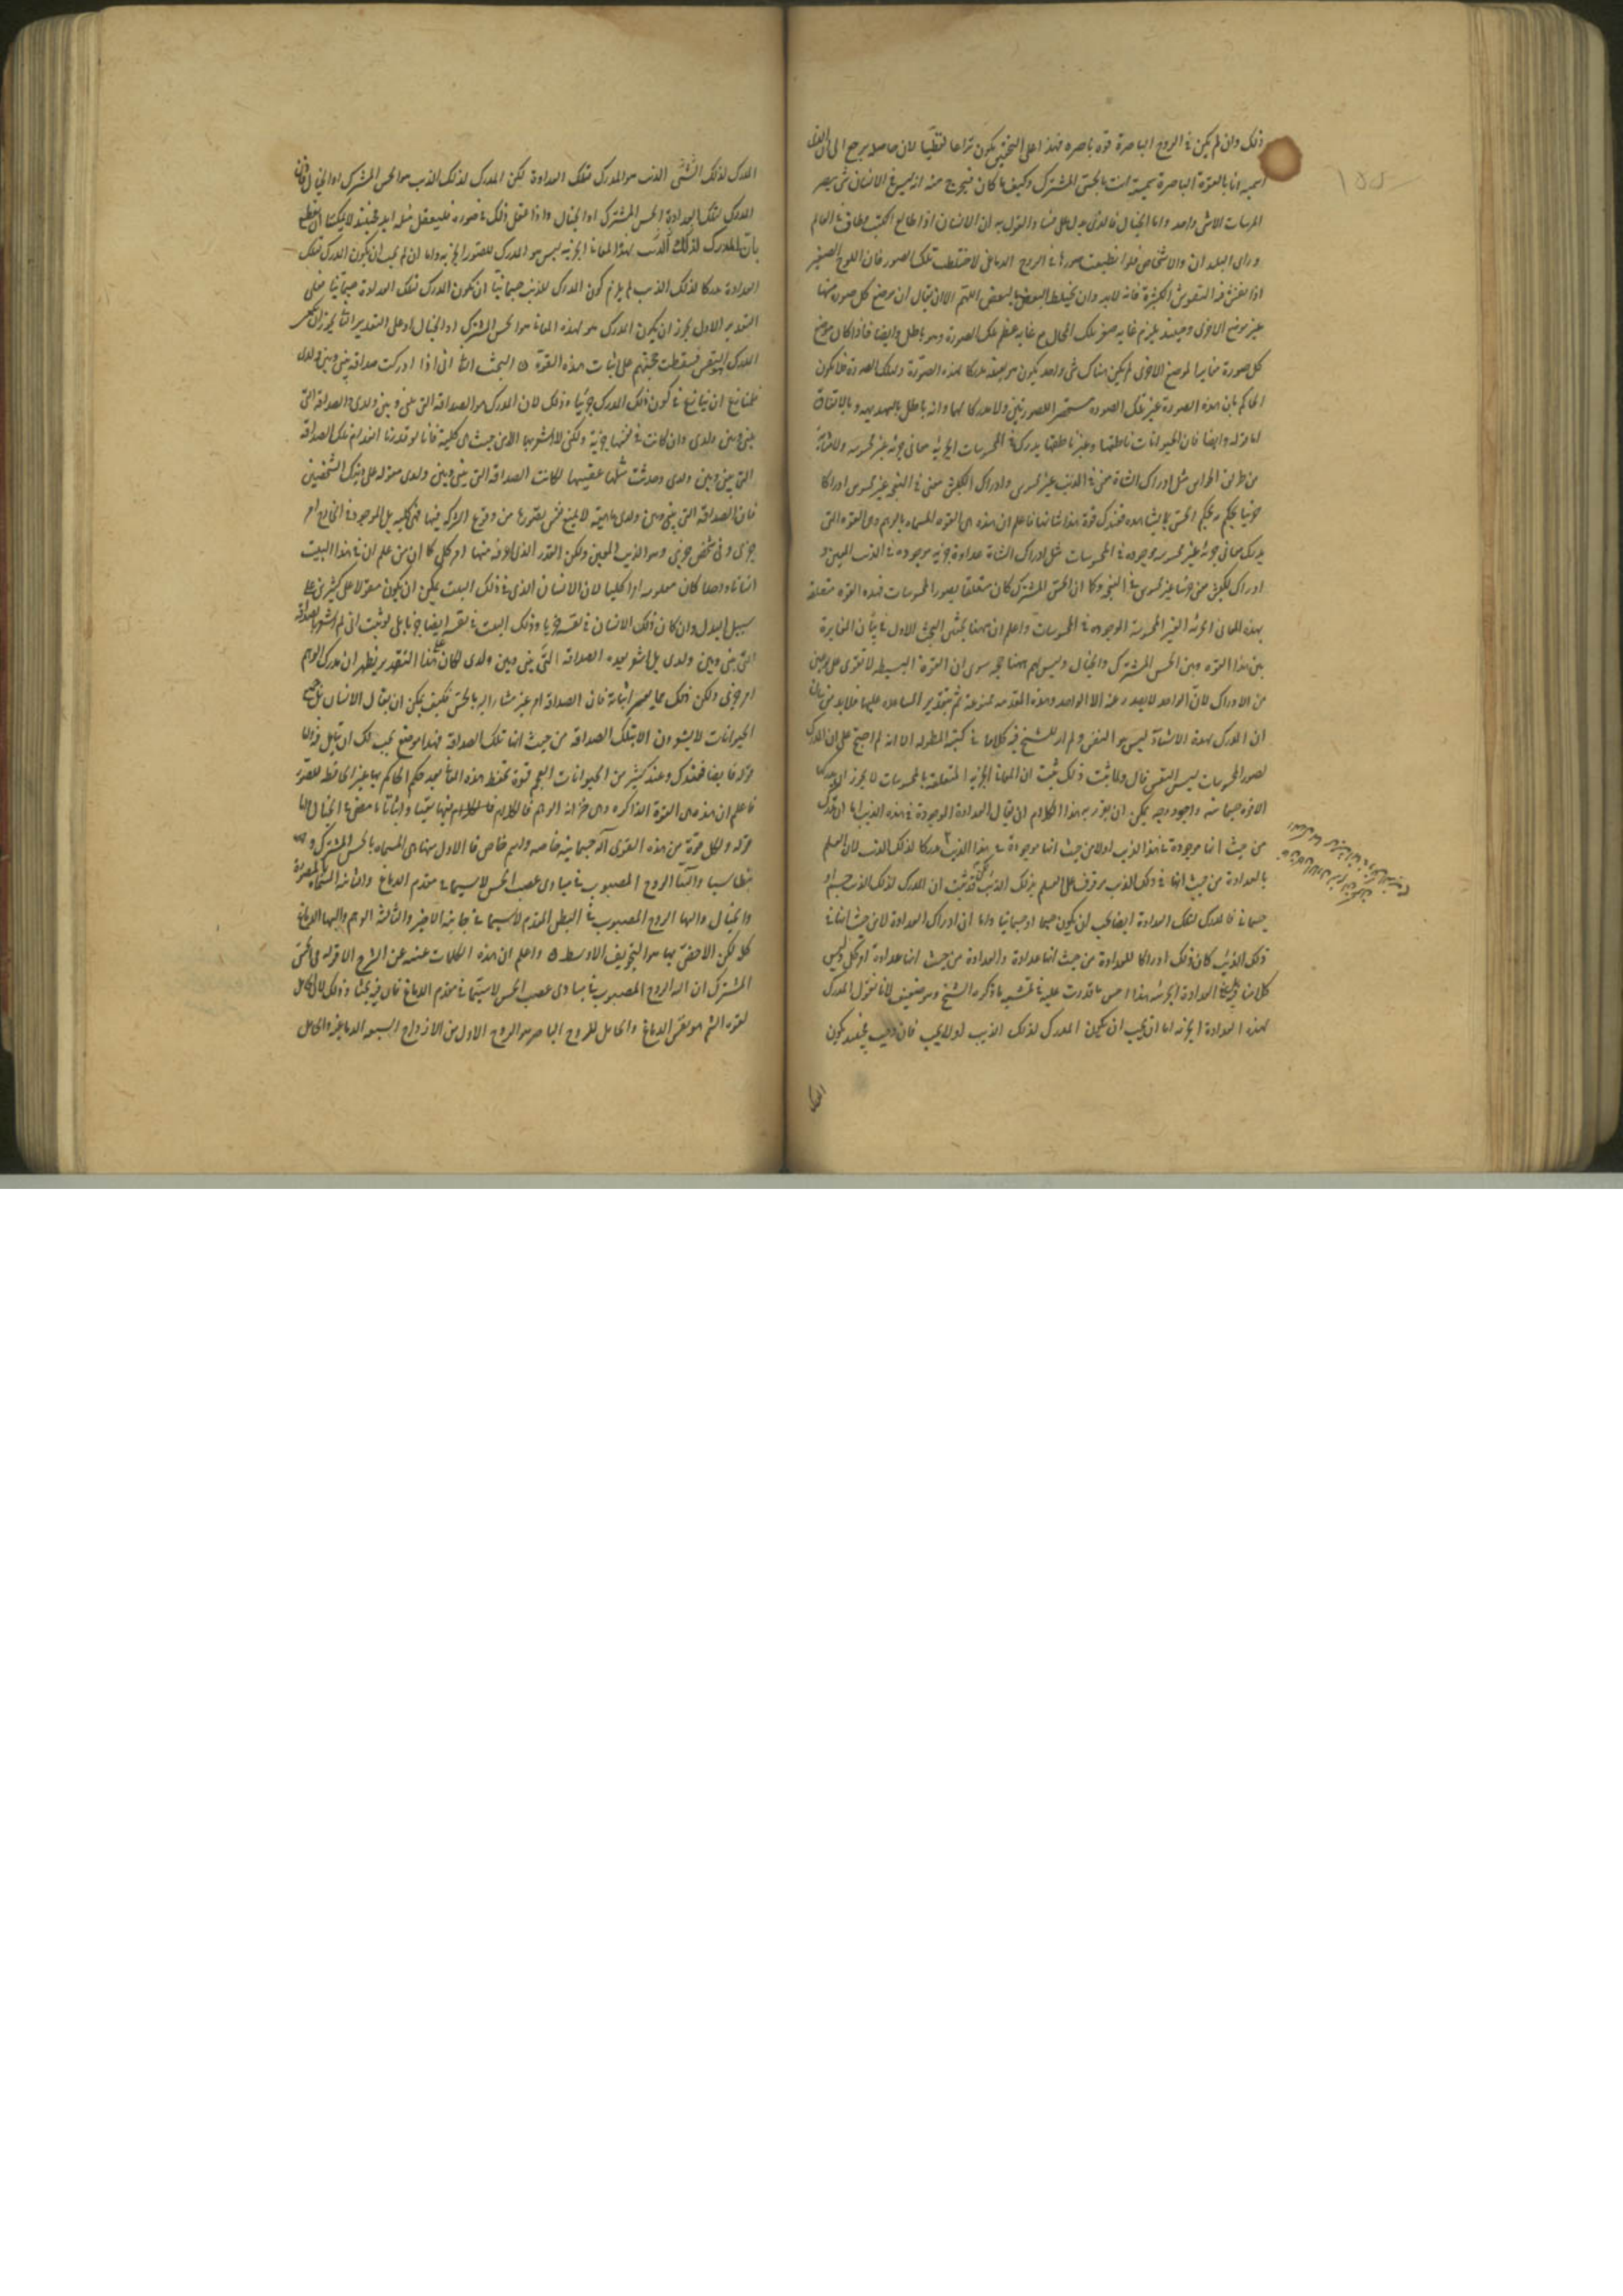 ذلك وان لم يكن فى الروح الباصرة قوة باصرة فهذا على التحقيق يكون نزاعا لفظيا لان حاصله يرجع الى ان الذى
اسميه انا بالقوة الباصرة سميته انت بالحس المشترك وكيف ما كان فيخرج منه انه ليس فى الانسان شى يبصر
المبصرات الا شى واحد واما الخيال فالذى يدل على فساد القول به ان الانسان اذا طالع الكتب وطاف فى العالم
وراى البلدان والاشخاص فلو انطبعت صورها فى الروح الدماغى لاختلطت تلك الصور فان اللوح الصغير
اذا نقش فيه النقوش الكثيرة فانه لابد وان يختلط البعض بالبعض اللهم الا ان يقال ان موضع كل صورة منها
غير موضع الاخرى وحينئذ يلزم غاية صغر تلك المحال مع غاية عظم تلك الصورة وهو باطل وايضا فاذا كان موضع
كل صورة مغايرا لموضع الاخرى لم يكن هناك شى واحد يكون هو بعينه مدركا لهذه الصورة ولتلك الصورة فلا يكون
الحاكم بان هذه الصورة غير تلك الصورة مستحضرا للصورتين ولا مدركا لهما وانه باطل بالبديهة وبالاتفاق
اما قوله وايضا فان الحيوانات ناطقها وغير ناطقها يدرك فى المحسوسات الجزئية معانى جزئية غير محسوسة ولا متأدية
من طريق الحواس مثل ادراك الشاة معنى فى الذئب غير محسوس وادراك الكبش معنى فى النعجة غير محسوس ادراكا
جزئيا يحكم به كما يحكم الحس بما يشاهده فعندك قوة هذا شانها فاعلم ان هذه هى القوة المسماة بالوهم وهى القوة التى
يدرك معانى جزئية غير محسوسة موجودة فى المحسوسات مثل ادراك الشاة عداوة جزئية موجودة فى الذئب المعين و
ادراك الكبش معنى جزئيا غير محسوس فى النعجة وكما ان الحس المشترك كان متعلقا بصور المحسوسات فهذه القوة متعلقة
بهذه المعانى الجزئية الغير المحسوسة الموجودة فى المحسوسات واعلم ان ههنا بحثين البحث الاول فى بيان المغايرة
بين هذا القوة وبين الحس المشترك والخيال وليس لهم ههنا حجة سوى ان القوة البسيطة لا تقوى على نوعين
من الادراك لان الواحد لا يصدر عنه الا الواحد وهذه المقدمة ممنوعة ثم بتقدير المساعدة عليها فلابد من بيان
ان المدرك لهذه الاشياء ليس هو النفس ولم ار للشيخ فيه كلاما فى كتبه المطولة الا انه لما احتج على ان المدرك
لصور المحسوسات ليس النفس قال ولما ثبت ذلك ثبت ان المعانى الجزئية المتعلقة بالمحسوسات لا يجوز ان يدركها
الا قوة جسمانية واجود وجه يمكن ان يقرر به هذا الكلام ان يقال العداوة الموجودة فى هذه الذئب اما ان تدرك
من حيث انها موجودة فى هذا الذئب او لا من حيث انها موجودة فى هذا الذئب مدركا لذلك الذئب لان العلم
بالعداوة من حيث انها فى ذلك الذئب موقوف على العلم بذلك الذئب لكن قد ثبت ان المدرك لذلك الذئب جسم او
جسمانى فالمدرك لتلك العداوة ايضا يجب ان يكون جسما او جسمانيا واما ان ادراك العداوة لا من حيث انها فى
ذلك الذئب كان ذلك ادراكا للعداوة من حيث انها عداوة والعداوة من حيث انها عداوة امر كلى وليس
كلامنا فيه بل فى العداوة الجزئية هذا احسن ما قدرت عليه فى تمشية ما ذكره الشيخ وهو ضعيف لانا نقول المدرك
لهذه العداوة الجزئية اما ان يجب ان يكون المدرك لذلك الذئب او لا يجب فان وجب فحينئذ يكون
المدرك لذلك الشى الذئب هو المدرك لتلك العداوة لكن المدرك لذلك الذئب هو الحس المشترك او الخيال فاذن
المدرك لتلك العداوة الحس المشترك او الخيال واذا عقل ذلك فى صورة فليعقل مثله ابدا فحينئذ لا يمكننا ان نقطع
بان المدرك لذلك الذئب لهذه المعانى الجزئية ليس هو المدرك للصور الجزئية واما ان لم يجب ان يكون المدرك لتلك
العداوة مدركا لذلك الذئب لم يلزم كون المدرك للذئب جسمانيا ان يكون المدرك لتلك العداوة جسمانيا فعلى
التقدير الاول يجوز ان يكون المدرك لهذه المعانى هو الحس المشترك او الخيال وعلى التقدير الثانى يجوز ان يكون
المدرك هو النفس فسقطت حجتهم على اثبات هذه القوة ۞ البحث الثانى انى اذا ادركت صداقة بينى وبين ولدى
فلمنازع ان ينازع فى كون ذلك المدرك جزئيا وذلك لان المدرك هو الصداقة التى بينى وبين ولدى والصداقة التى
بينى وبين ولدى وان كانت فى نفسها جزئية ولكنى لا اشعر بها الا من حيث هى كلية فانا لو قدرنا انعدام تلك الصداقة
التى بينى وبين ولدى وحدثت مثلها عقيبها لكانت الصداقة التى بينى وبين ولدى مقولة على ذينك الشخصين
فان الصداقة التى بينى وبين ولدى ماهية لا يمنع نفس تصورها من وقوع الشركة فيها فهى كلية بل الموجود فى الخارج امر
جزئى وفى شخص جزئى وهو الذئب المعين ولكن القدر الذى اعرفه منها امر كلى كما ان من علم ان فى هذا البيت
انسانا واحدا كان معلومه امرا كليا لان الانسان الذى فى ذلك البيت يمكن ان يكون مقولا على كثيرين على
سبيل البدل وان كان ذلك الانسان فى نفسه جزئيا وذلك البيت فى نفسه ايضا جزئيا بلى لو ثبت انى لم اشعر بالصداقة
التى بينى وبين ولدى بل اشعر بهذه الصداقة التى بينى وبين ولدى لكان على هذا التقدير يظهر ان مدرك الوهم
امر جزئى ولكن ذلك مما يعسر اثباته فان الصداقة امر غير مشار اليه بالحس فكيف يمكن ان يقال الانسان بل جميع
الحيوانات لا يشعرون الا بتلك الصداقة من حيث انها تلك الصداقة فهذا موضع يجب لك ان تتامل فيه اما
قوله وايضا فعندك وعند كثير من الحيوانات العجم قوة تحفظ هذه المعانى بعد حكم الحاكم بها غير الحافظة للصور
فاعلم ان هذه هى القوة الذاكرة وهى خزانة الوهم فالكلام فيها نفيا واثباتا ما مضى فى الخيال اما
قوله ولكل قوة من هذه القوى آلة جسمانية خاصة واسم خاص فالاول منها هى المسماة بالحس المشترك و
بنطاسيا وآلتها الروح المصبوب فى مبادى عصب الحس لا سيما فى مقدم الدماغ والثانية المسماة بالمصورة
والخيال وآلتها الروح المصبوب فى البطن المقدم لا سيما فى جانبه الاخير والثالثة الوهم وآلتها الدماغ
كله لكن الاخص بها هو التجويف الاوسط ۞ واعلم ان هذه الكلمات غنية عن الشرح الا قوله فى الحس
المشترك ان آلته الروح المصبوب فى مبادى عصب الحس لا سيما فى مقدم الدماغ فان فيه بحثا وذلك لان الحامل
لقوة الشم هو مقدم الدماغ والحامل للروح الباصر هو الزوج الاول من الازواج السبعة الدماغية والحامل